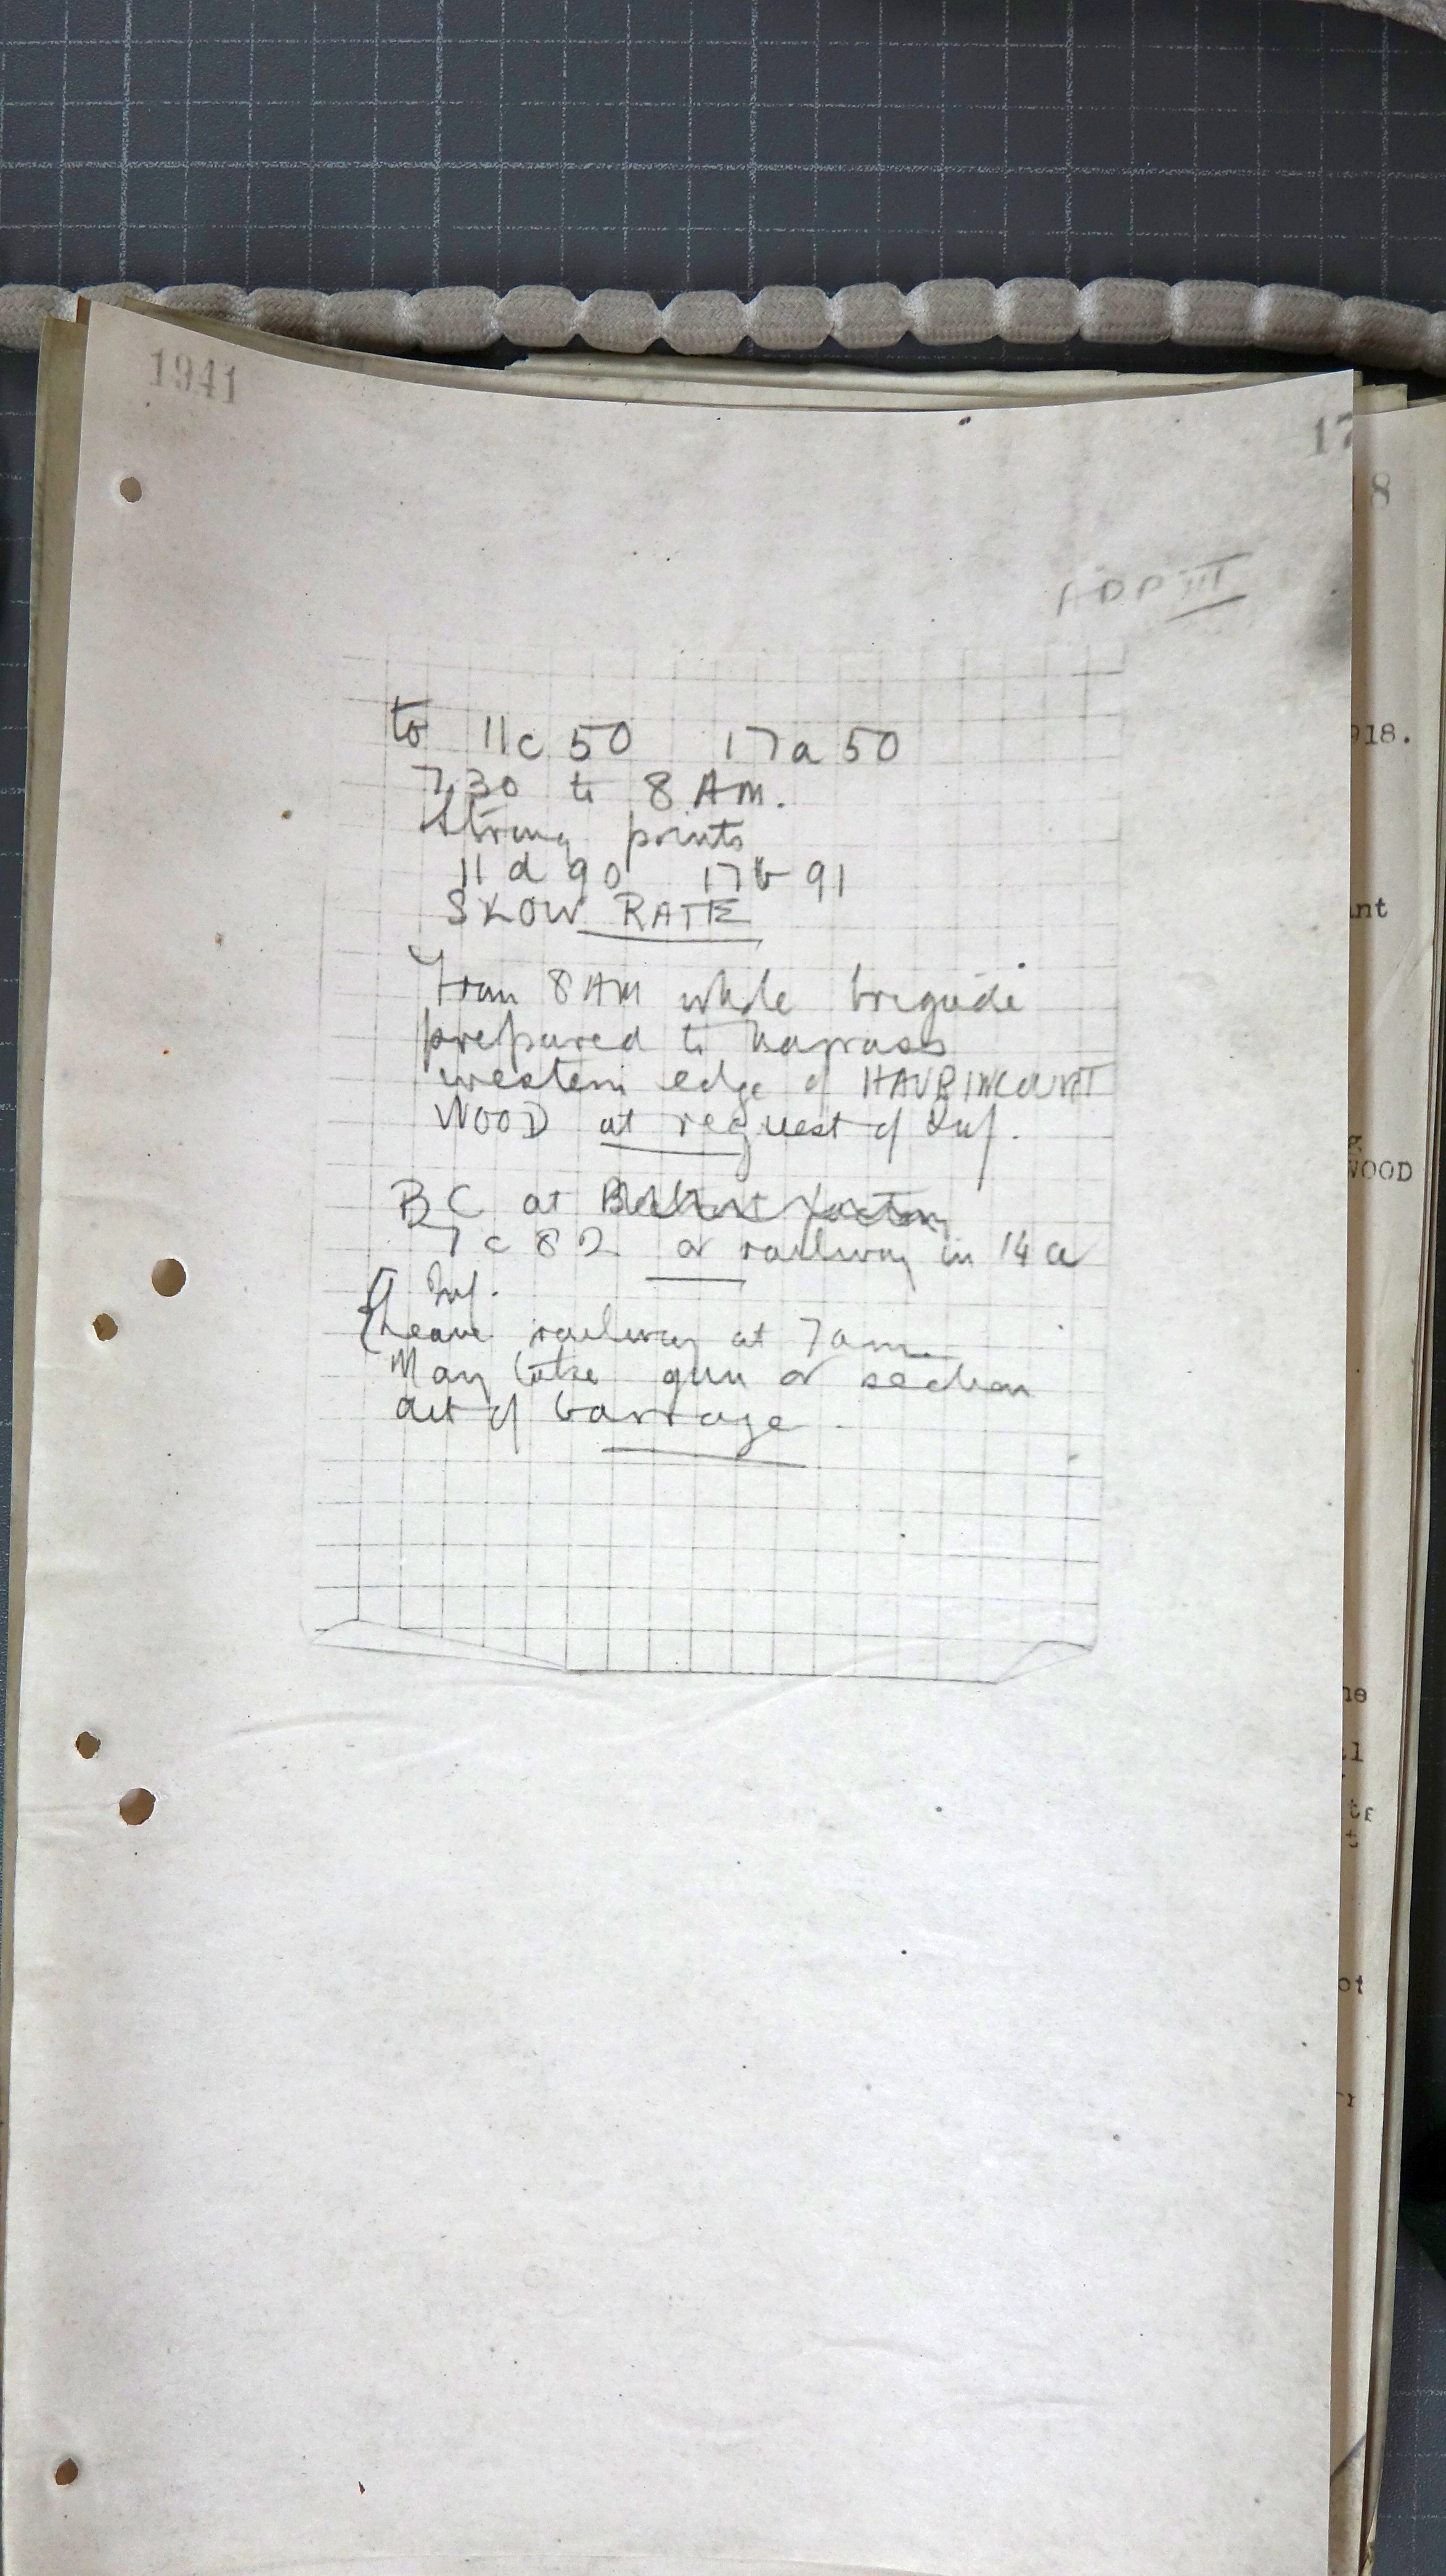 1941
17
8
APP III
to 11c 50 17a 50
7.30 to 8 AM.
Strong points
11 d 90 17b 91
SLOW RATE
From 8 AM whole brigade
prepared to harrass
western edge of HAVRINCOURT
WOOD at request of Inf.
BC at
7 c 82 or railway in 14 a
Inf.
{Leave railway at 7 am.
May take gun or section
out of barrage.
918.
nt
g
WOOD
ne
l
te
t
ot